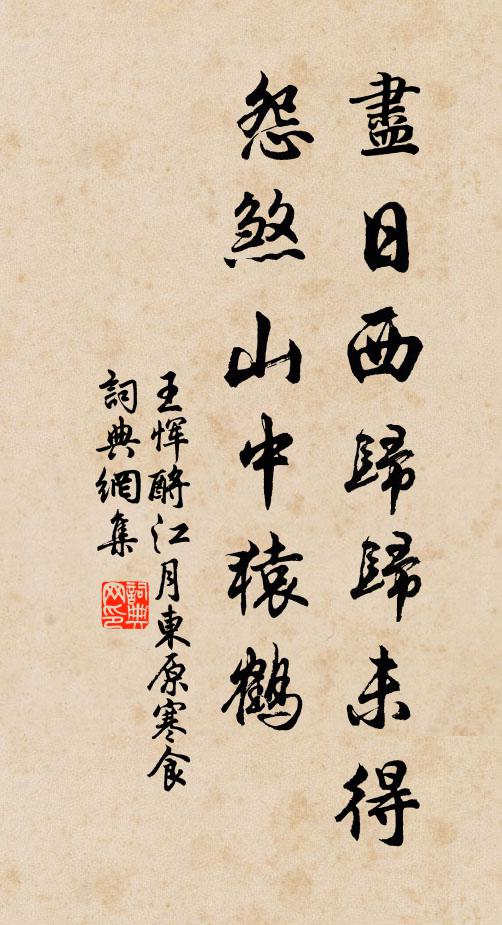 盡日西歸歸未得
怨煞山中猿鶴
王惲酹江月東原寒食
詞典網集
詞典网印